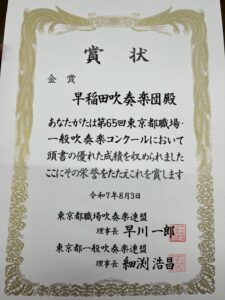 賞状
金賞
早稲田吹奏楽団殿
あなたがたは第65回東京都職場・
一般吹奏楽コンクールにおいて
頭書の優れた成績を収められました
ここにその栄誉をたたえこれを賞します
令和7年8月3日
東京都職場吹奏楽連盟
理事長 早川一郎
東京都一般吹奏楽連盟
理事長 細渕浩昌